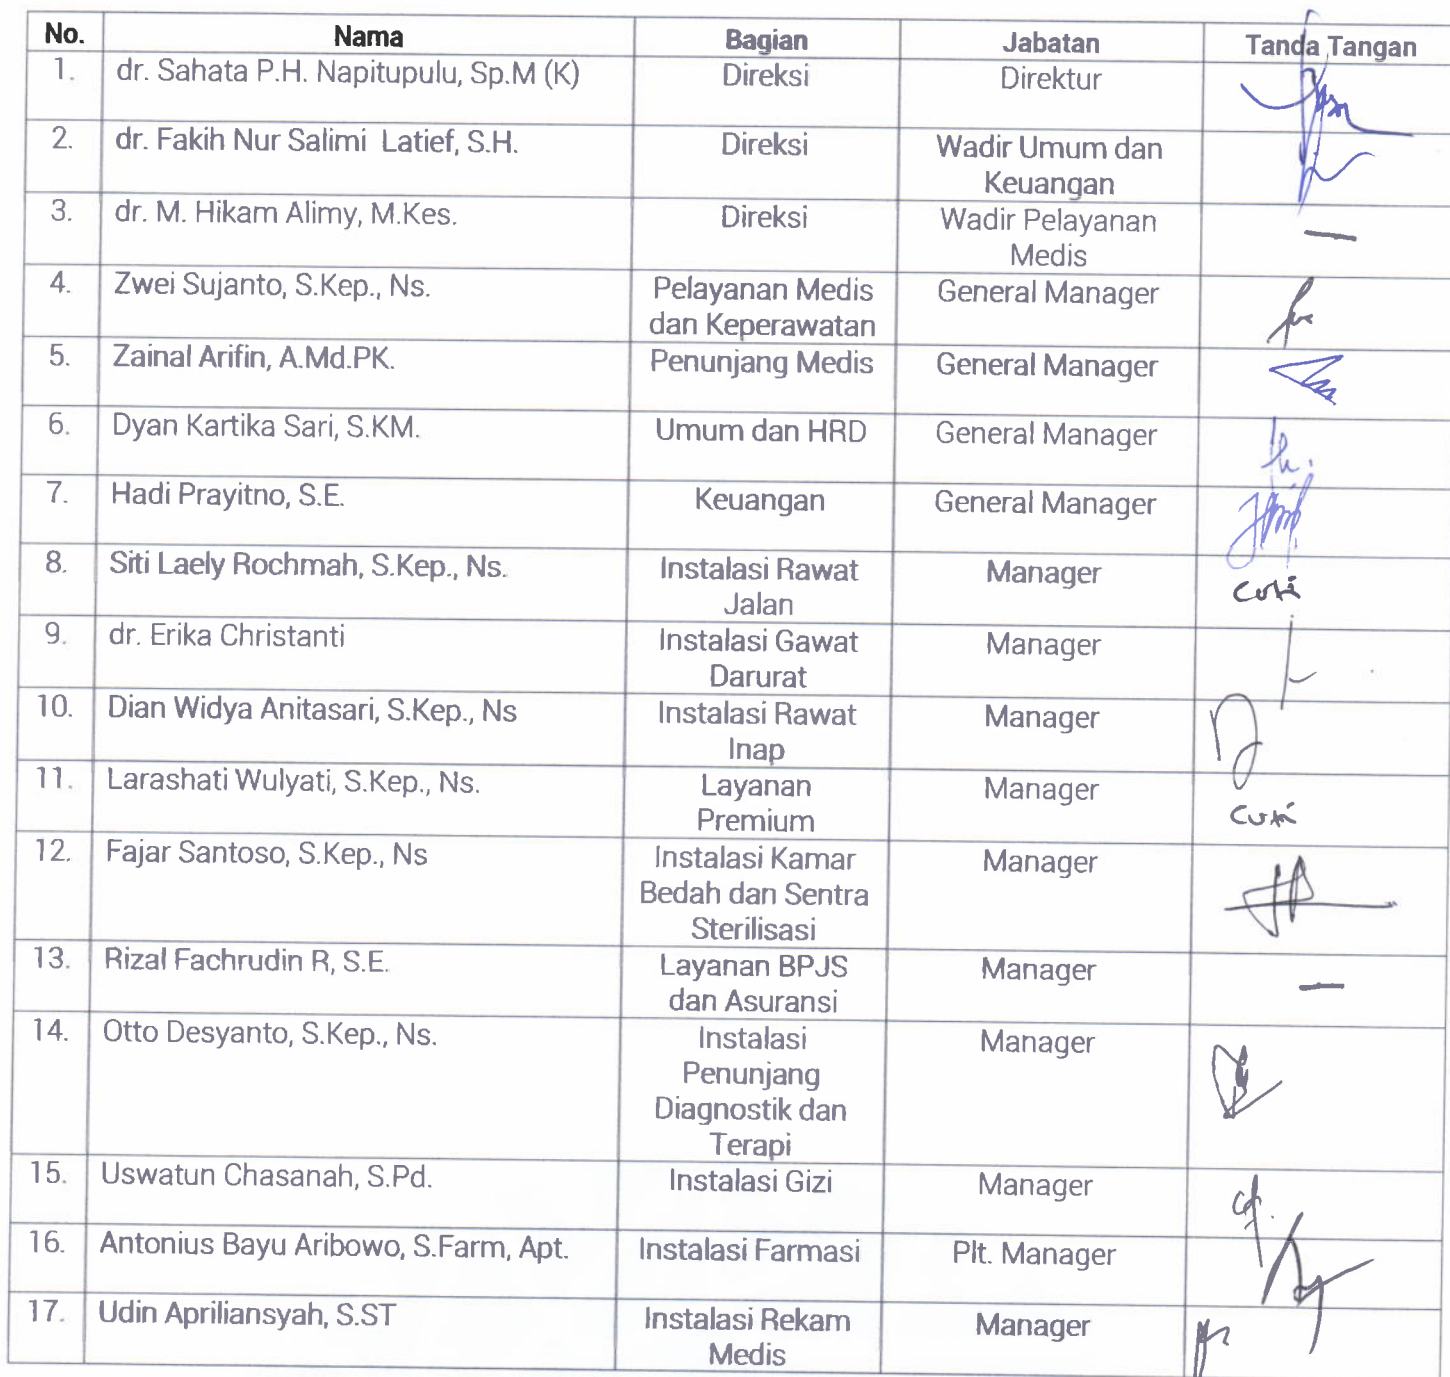 No. Nama Bagian Jabatan Tanda Tangan
1. dr. Sahata P.H. Napitupulu, Sp.M (K) Direksi Direktur
2. dr. Fakih Nur Salimi Latief, S.H. Direksi Wadir Umum dan
Keuangan
3. dr. M. Hikam Alimy, M.Kes. Direksi Wadir Pelayanan —
Medis
4. Zwei Sujanto, S.Kep., Ns. Pelayanan Medis General Manager
dan Keperawatan
5. Zainal Arifin, A.Md.PK. Penunjang Medis General Manager
6. Dyan Kartika Sari, S.KM. Umum dan HRD General Manager
7. Hadi Prayitno, S.E. Keuangan General Manager
8. Siti Laely Rochmah, S.Kep., Ns. Instalasi Rawat Manager Cuti
Jalan
9. dr. Erika Christanti Instalasi Gawat Manager
Darurat
10. Dian Widya Anitasari, S.Kep., Ns Instalasi Rawat Manager
Inap
11. Larashati Wulyati, S.Kep., Ns. Layanan Manager Cuti
Premium
12. Fajar Santoso, S.Kep., Ns Instalasi Kamar Manager
Bedah dan Sentra
Sterilisasi
13. Rizal Fachrudin R, S.E. Layanan BPJS Manager —
dan Asuransi
14. Otto Desyanto, S.Kep., Ns. Instalasi Manager
Penunjang
Diagnostik dan
Terapi
15. Uswatun Chasanah, S.Pd. Instalasi Gizi Manager
16. Antonius Bayu Aribowo, S.Farm, Apt. Instalasi Farmasi Plt. Manager
17. Udin Apriliansyah, S.ST Instalasi Rekam Manager
Medis